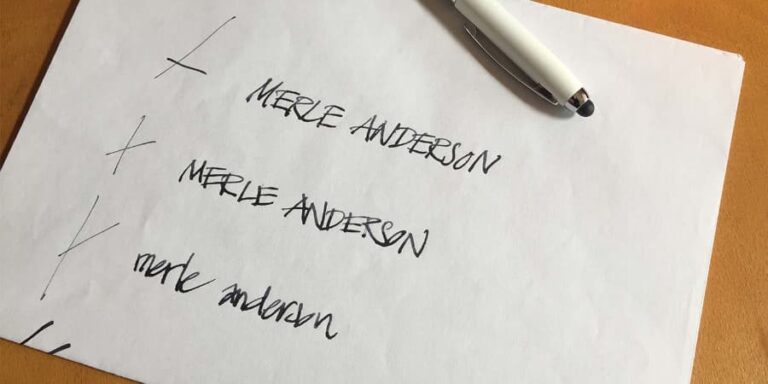 MERLE ANDERSON
MERLE ANDERSON
merle anderson